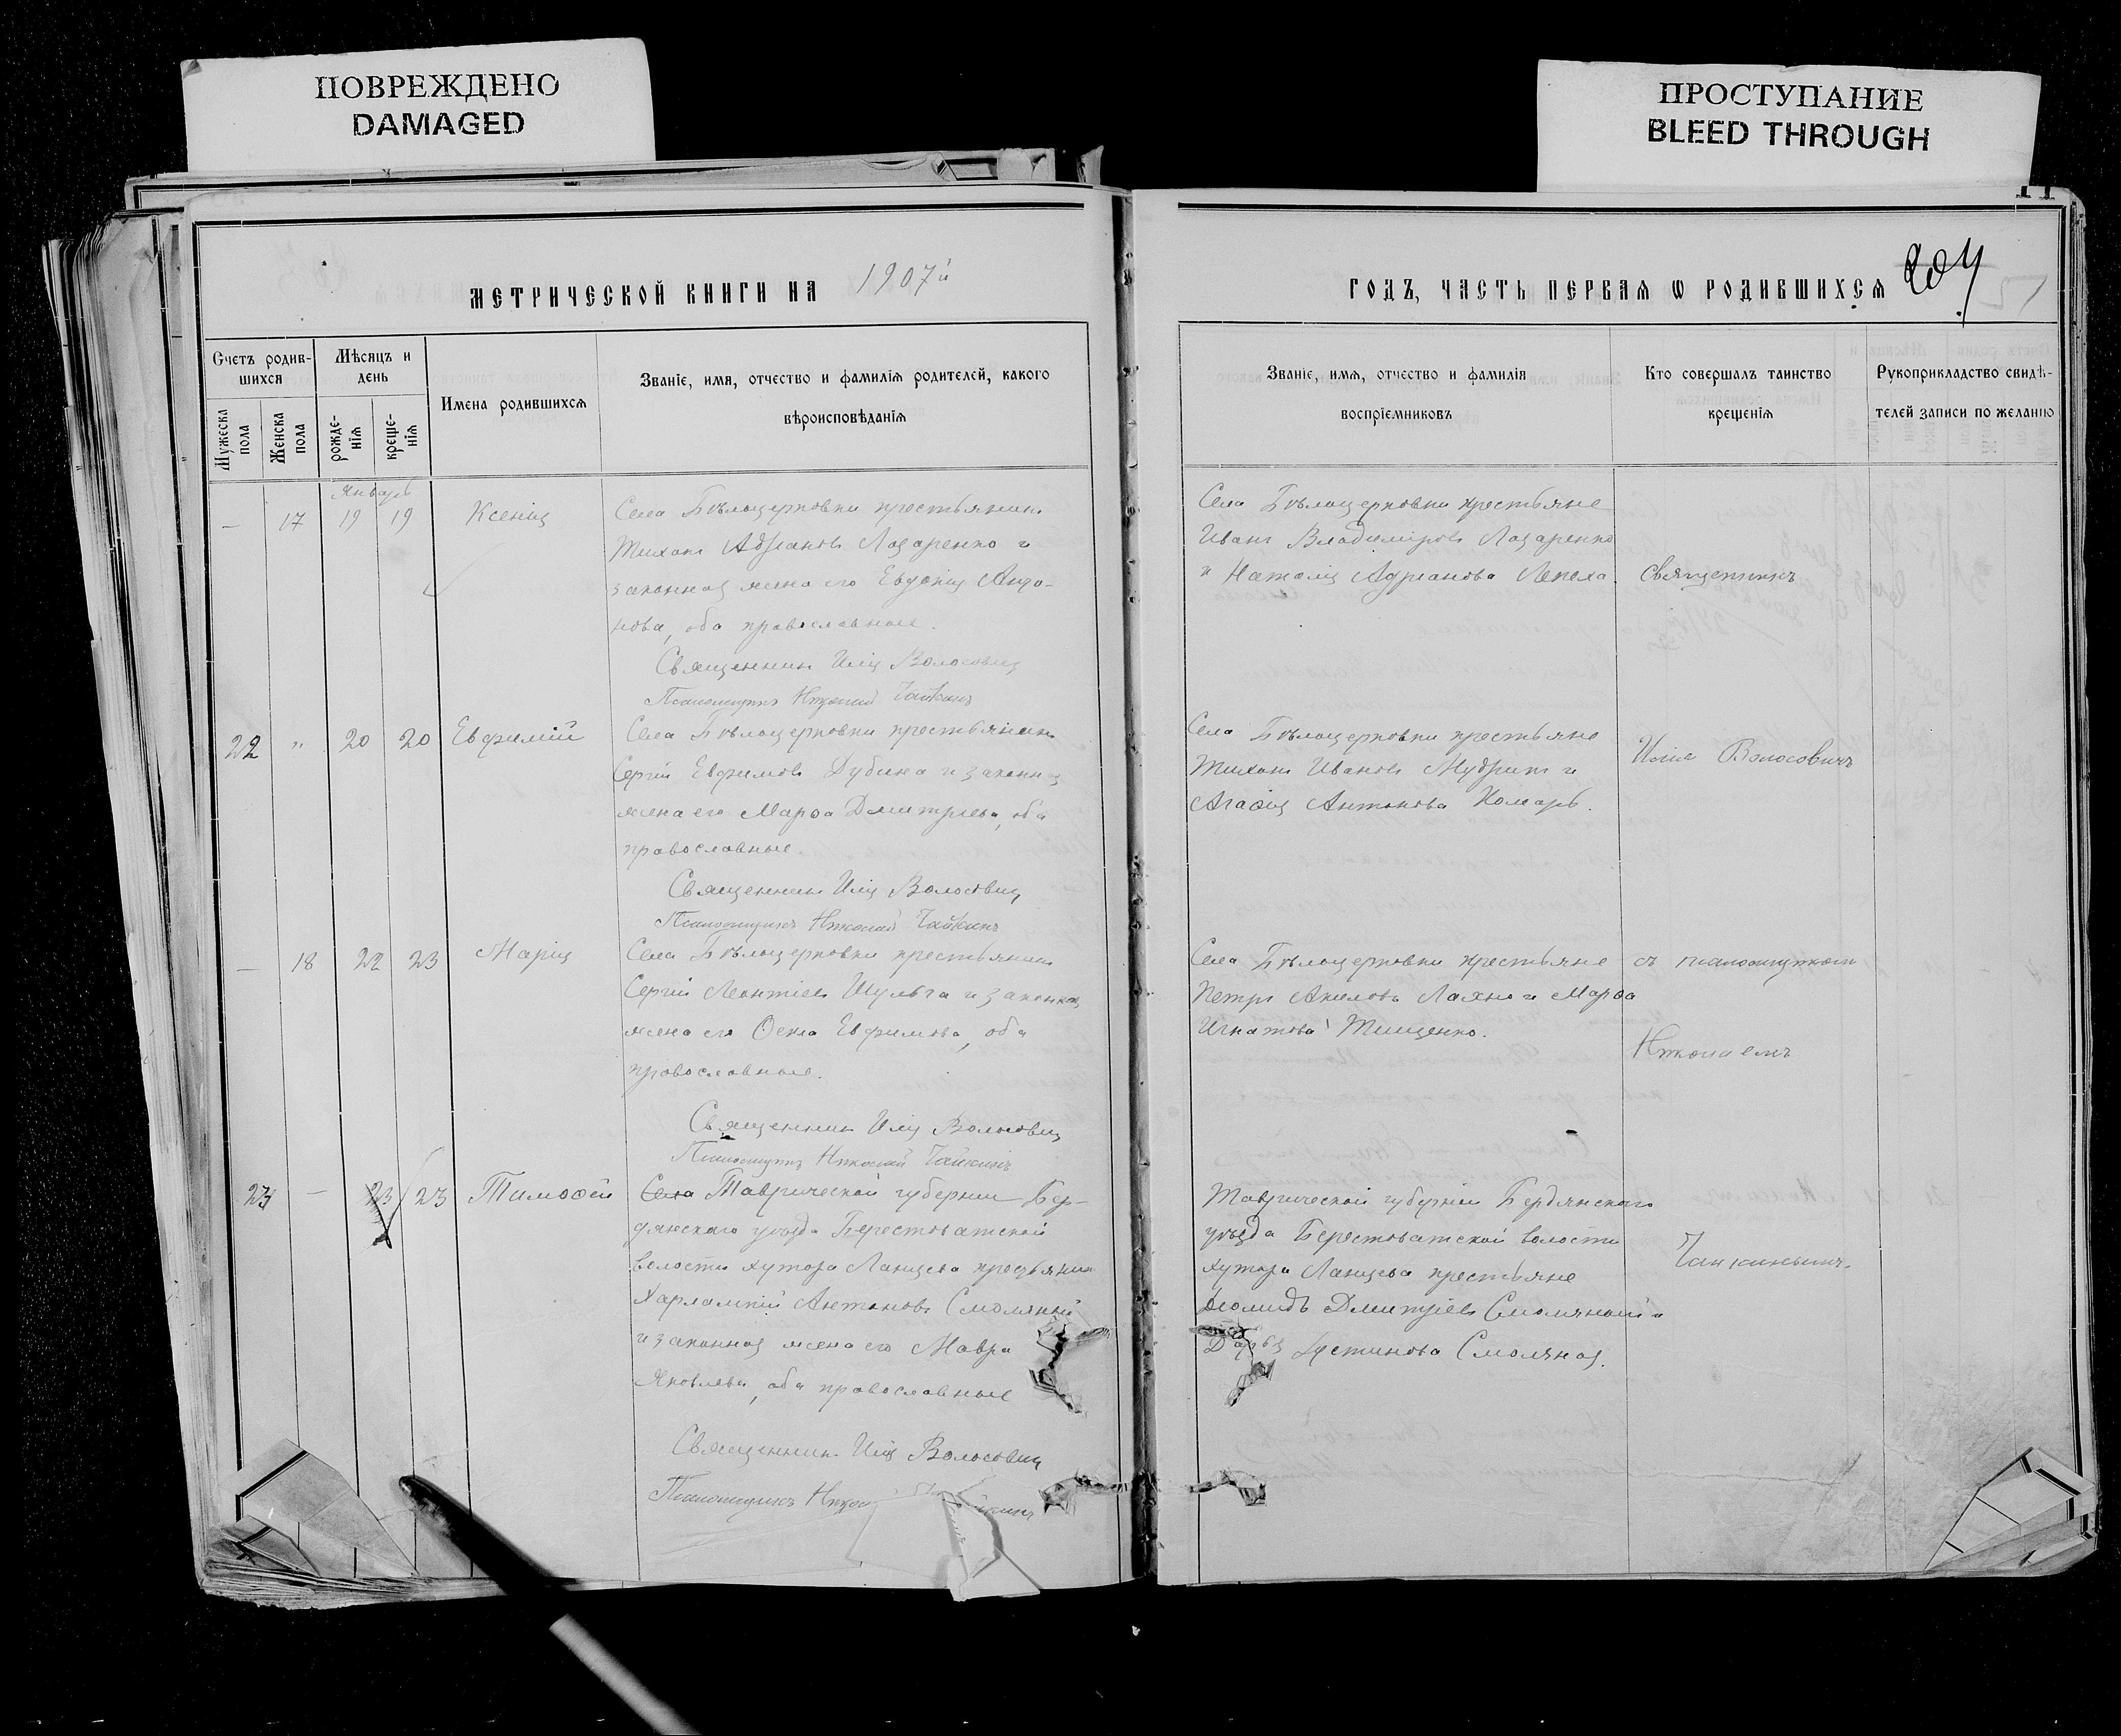 ПОВРЕЖДЕНО
DAMAGED
ПРОСТУПАНИЕ
BLEED THROUGH
МЕТРИЧЕСКОЙ КНИГИ НА 1907й
ГОДЪ, ЧАСТЬ ПЕРВАЯ Ѡ РОДИВШИХСЯ
204
Счетъ родив-
шихся
Мѣсяцъ и
день
Мужеска
пола
Женска
пола
рожде-
нія
креще-
нія
Имена родившихся
Званіе, имя, отчество и фамилія родителей, какого
вѣроисповѣданія
Званіе, имя, отчество и фамилія
воспріемниковъ
Кто совершалъ таинство
крещенія
Рукоприкладство свидѣ-
телей записи по желанію
Январь
— 17 19 19 Ксенія
Села Бѣлоцерковки крестьянинъ
Тихонъ Адріановъ Лазаренко и
законная жена его Евдокія Анто-
нова, оба православные.
Священникъ Илія Волосовичъ
Псаломщикъ Николай Чайкинъ
Села Бѣлоцерковки крестьяне
Иванъ Владиміровъ Лазаренко
и Наталія Адріанова Лепеха.
Священникъ
22 " 20 20 Евфимій
Села Бѣлоцерковки крестьянинъ
Сергій Евфимовъ Дубина и законная
жена его Марѳа Дмитріева, оба
православные.
Священникъ Илія Волосовичъ
Псаломщикъ Николай Чайкинъ
Села Бѣлоцерковки крестьяне
Тихонъ Ивановъ Мудрикъ и
Агафія Антонова Комарь.
Илія Волосовичъ
— 18 22 23 Марія
Села Бѣлоцерковки крестьянинъ
Сергій Леонтіевъ Шульга и законная
жена его Ѳекла Евфимова, оба
православные.
Священникъ Илія Волосовичъ
Псаломщикъ Николай Чайкинъ
Села Бѣлоцерковки крестьяне
Петръ Акимовъ Лахно и Марѳа
Игнатова Тищенко.
съ псаломщикомъ
Николаемъ
23 — 23 23 Тимоѳей
Села Таврической губерніи Бер-
дянскаго уѣзда Берестоватской
волости хутора Ланцева крестьянинъ
Харлампій Антоновъ Смоляный
и законная жена его Мавра
Яковлева, оба православные
Священникъ Илія Волосовичъ
Псаломщикъ
Таврической губерніи Бердянскаго
уѣзда Берестоватской волости
хутора Ланцева крестьяне
Діомидъ Дмитріевъ Смоляной и
Дарья Устинова Смоляная.
Чайкинымъ.